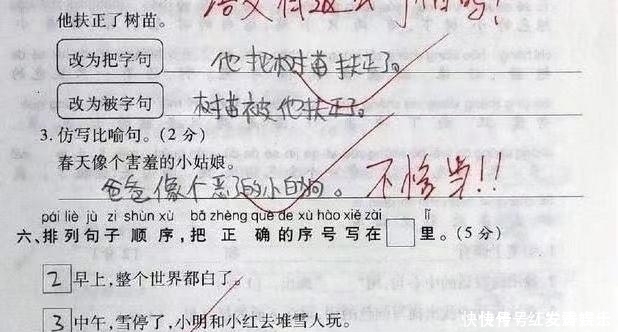 他扶正了树苗。
改为把字句 他把树苗扶正了。
改为被字句 树苗被他扶正了。
3.仿写比喻句。(2分)
春天像个害羞的小姑娘。
爸爸像个恶了的小白狗。 不恰当!!
pái liè jù zi shùn xù bǎ zhèng què de xù hào xiě zài lǐ
六、排列句子顺序,把正确的序号写在 里。(5分)
2 早上,整个世界都白了。
3 中午,雪停了,小明和小红去堆雪人玩。